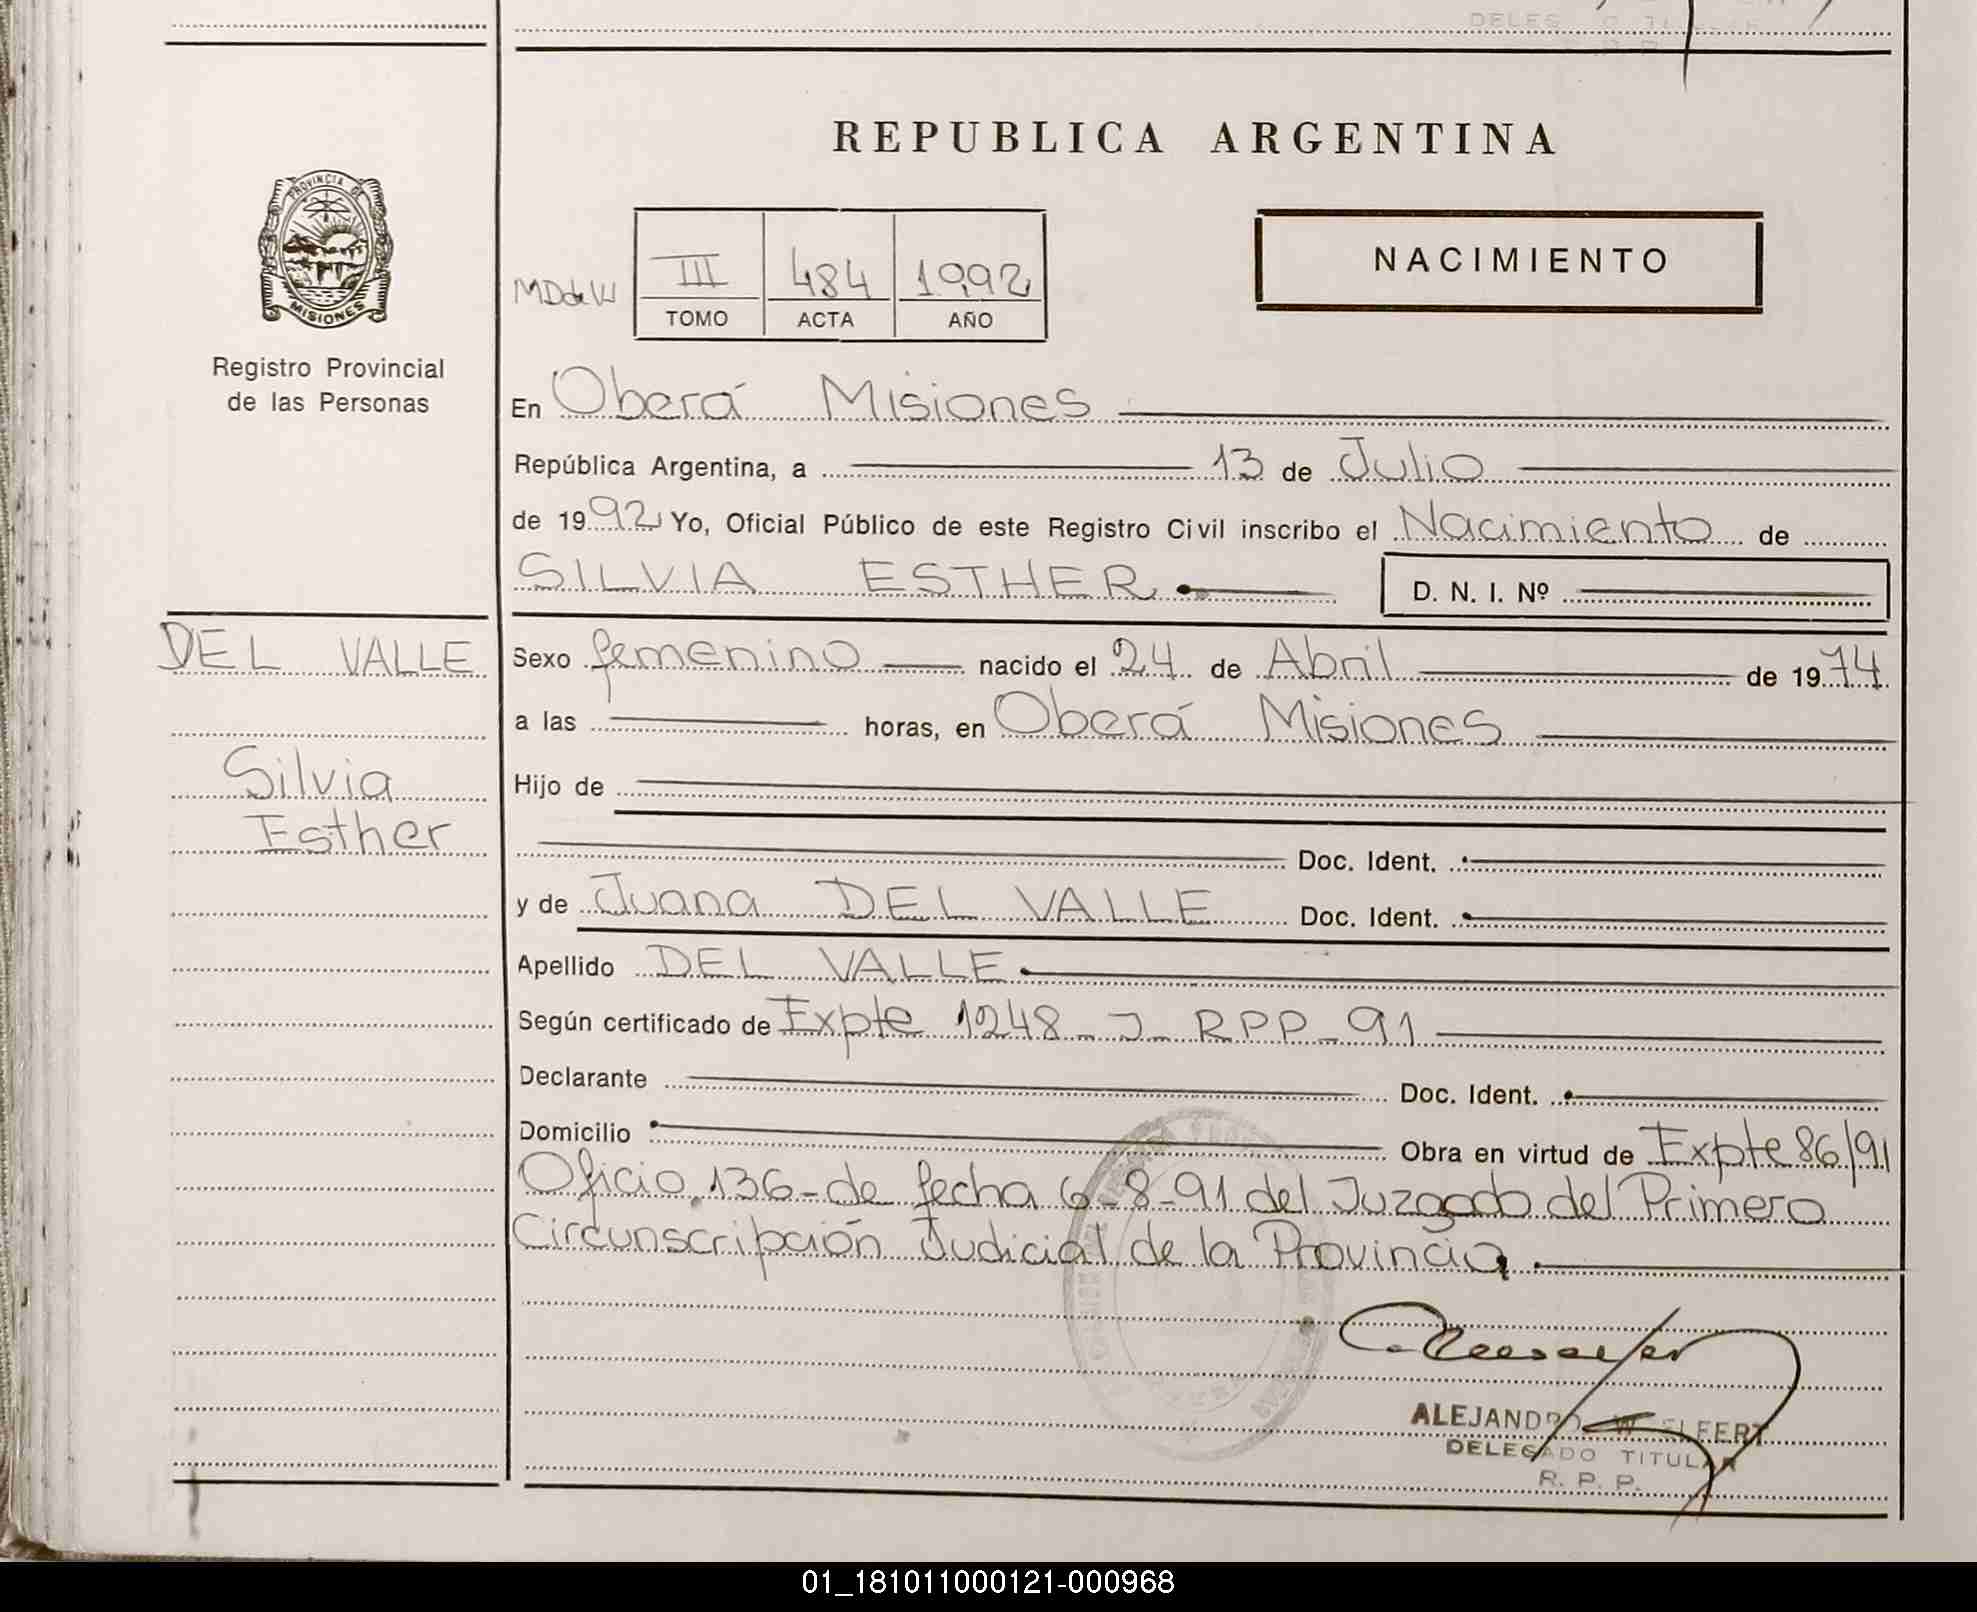 DELEG
REPUBLICA ARGENTINA
PROVINCIA DE
MISIONES
NACIMIENTO
III 484 1992
TOMO ACTA AÑO
Registro Provincial
de las Personas
En Oberá Misiones
República Argentina, a 13 de Julio
de 1992 Yo, Oficial Público de este Registro Civil inscribo el Nacimiento de
SILVIA ESTHER. D. N. I. Nº
DEL VALLE
Silvia
Esther
Sexo femenino nacido el 24 de Abril de 1974
a las horas, en Oberá Misiones
Hijo de
Doc. Ident.
y de Juana DEL VALLE Doc. Ident.
Apellido DEL VALLE
Según certificado de Expte 1248 - J - RPP - 91
Declarante Doc. Ident.
Domicilio Obra en virtud de Expte 86/91
Oficio 136 - de fecha 6-8-91 del Juzgado del Primero
Circunscripción Judicial de la Provincia.
ALEJANDRO
DELEGADO TITULAR
R. P. P.
01_181011000121-000968